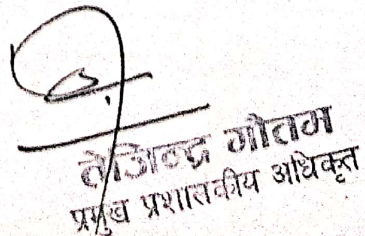 तेजिन्द्र गौतम
प्रमुख प्रशासकीय अधिकृत